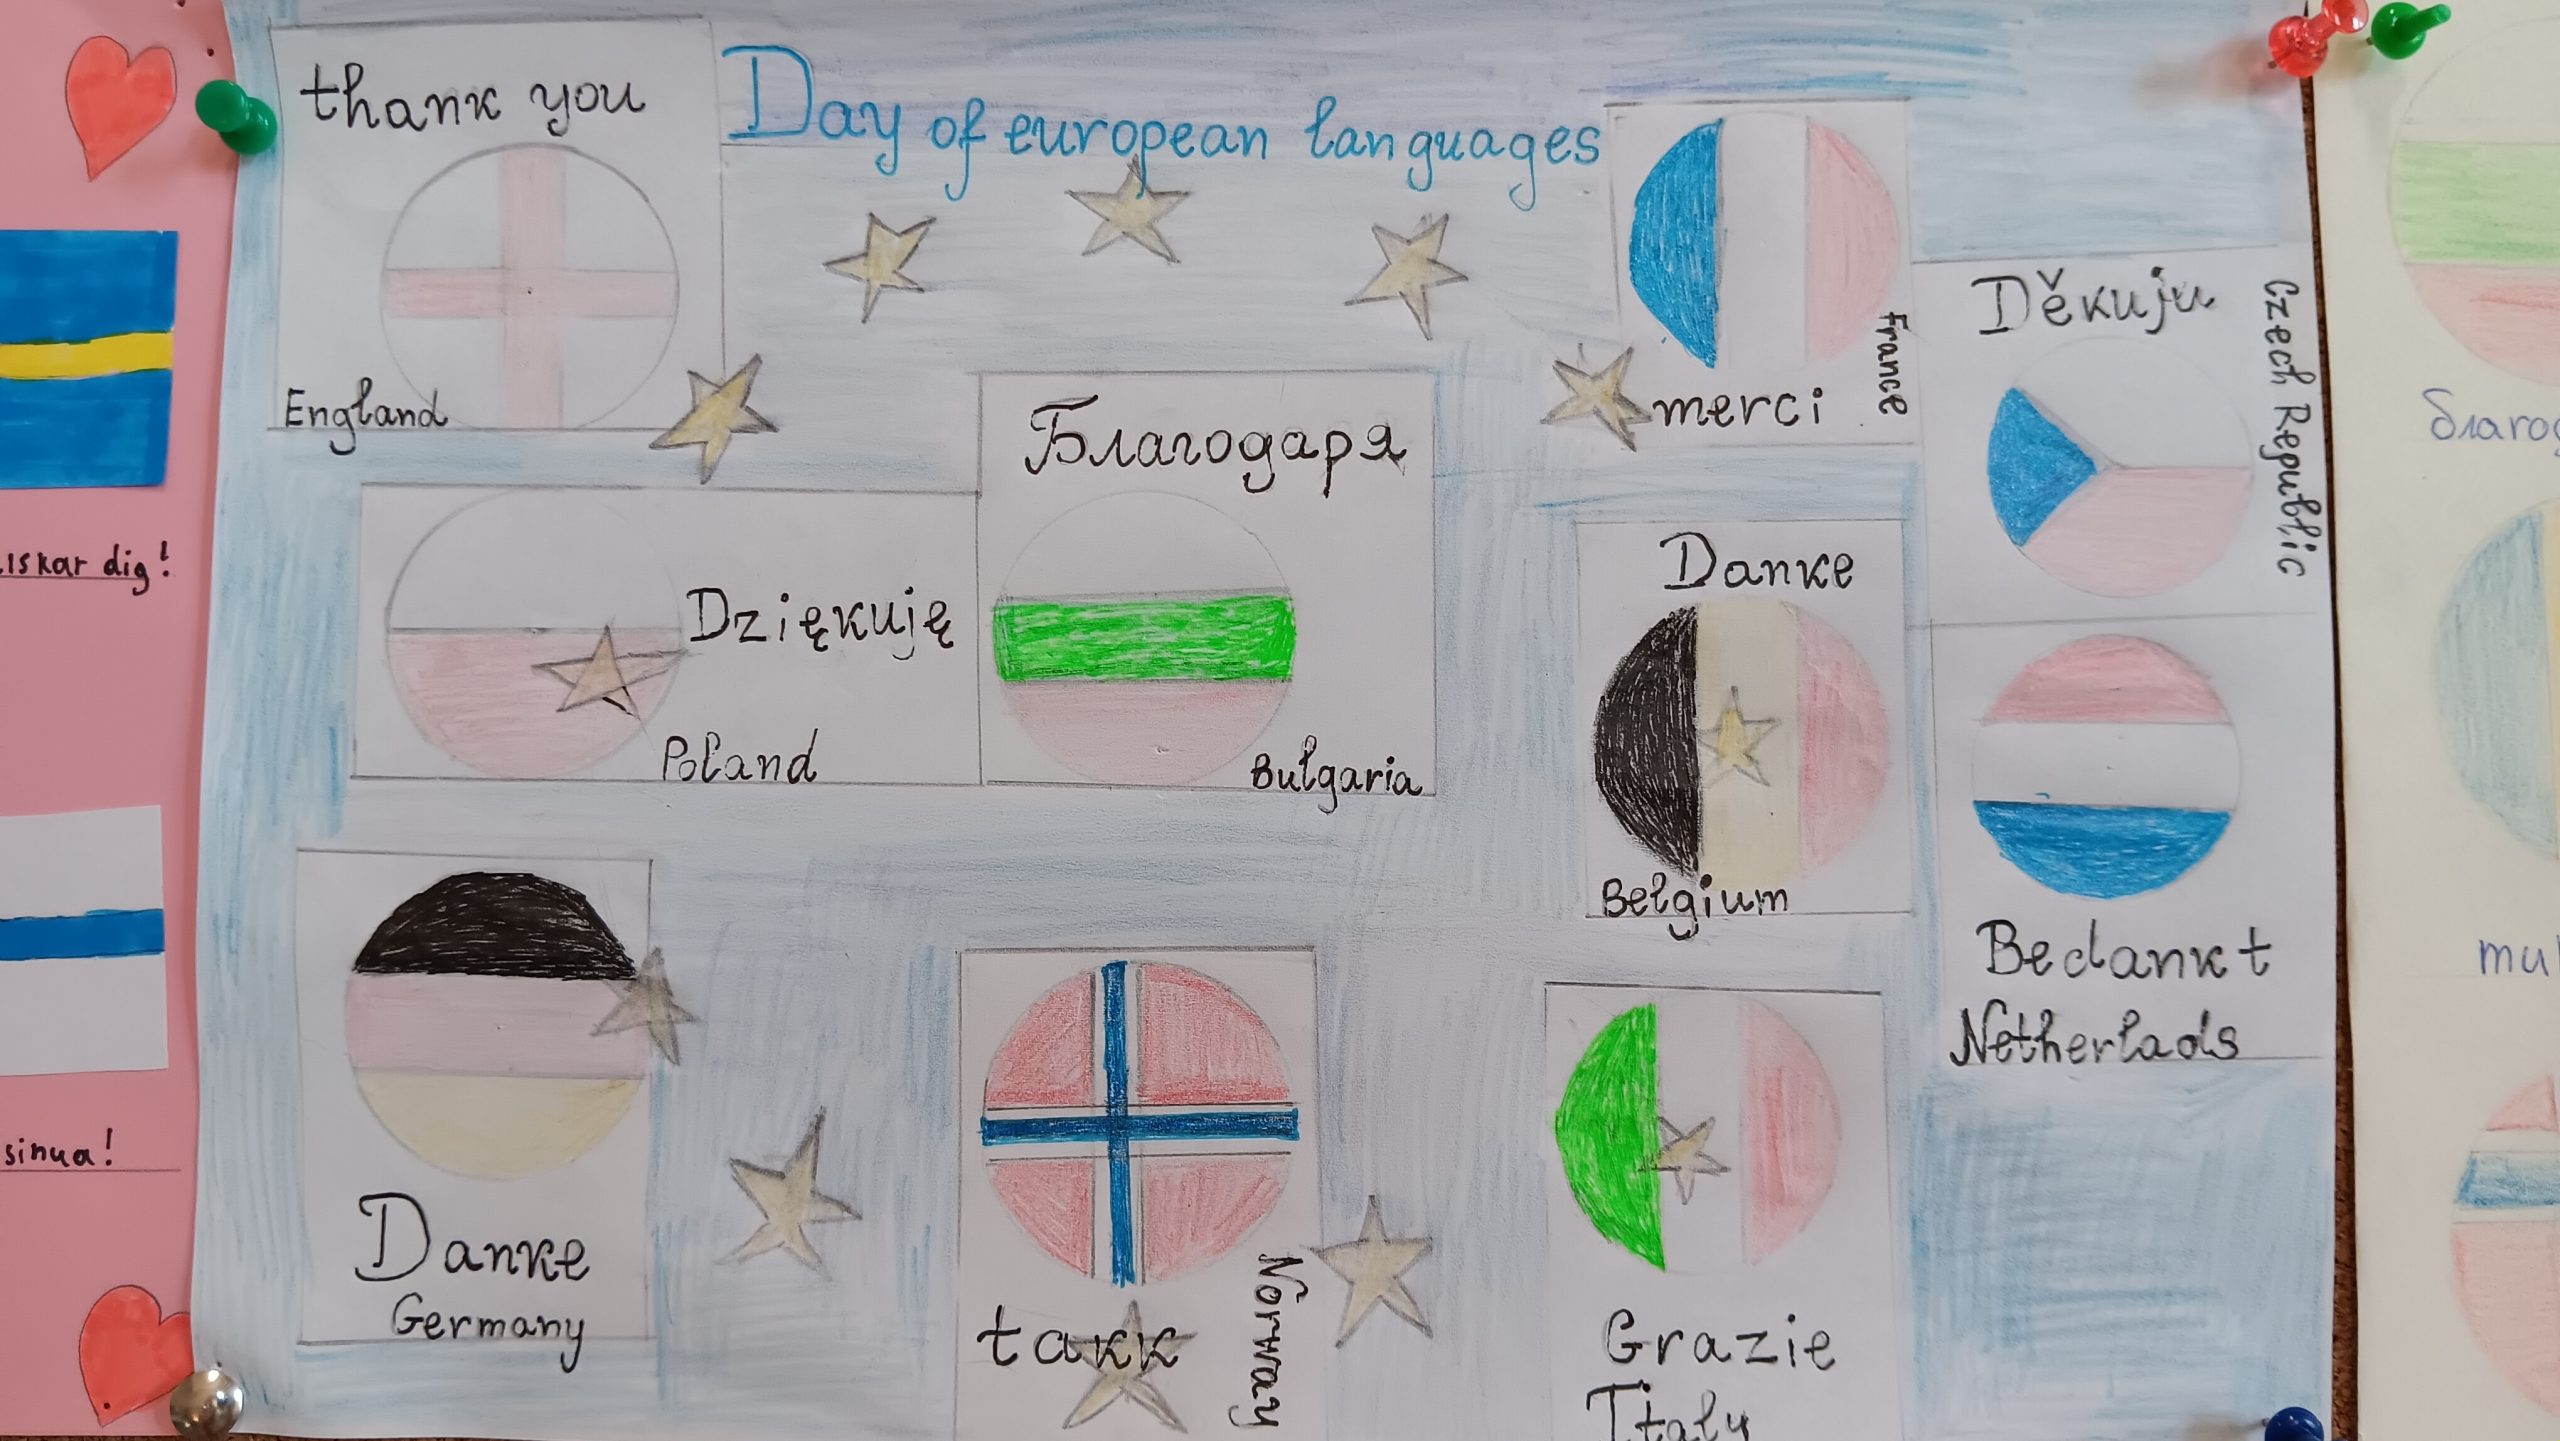 thank you
England
Day of european languages
merci
France
Děkuju
Czech Republic
Dziękuję
Poland
Благодаря
Bulgaria
Danke
Belgium
Bedankt
Netherlads
Danke
Germany
takk
Norway
Grazie
Italy
dig!
sinua!